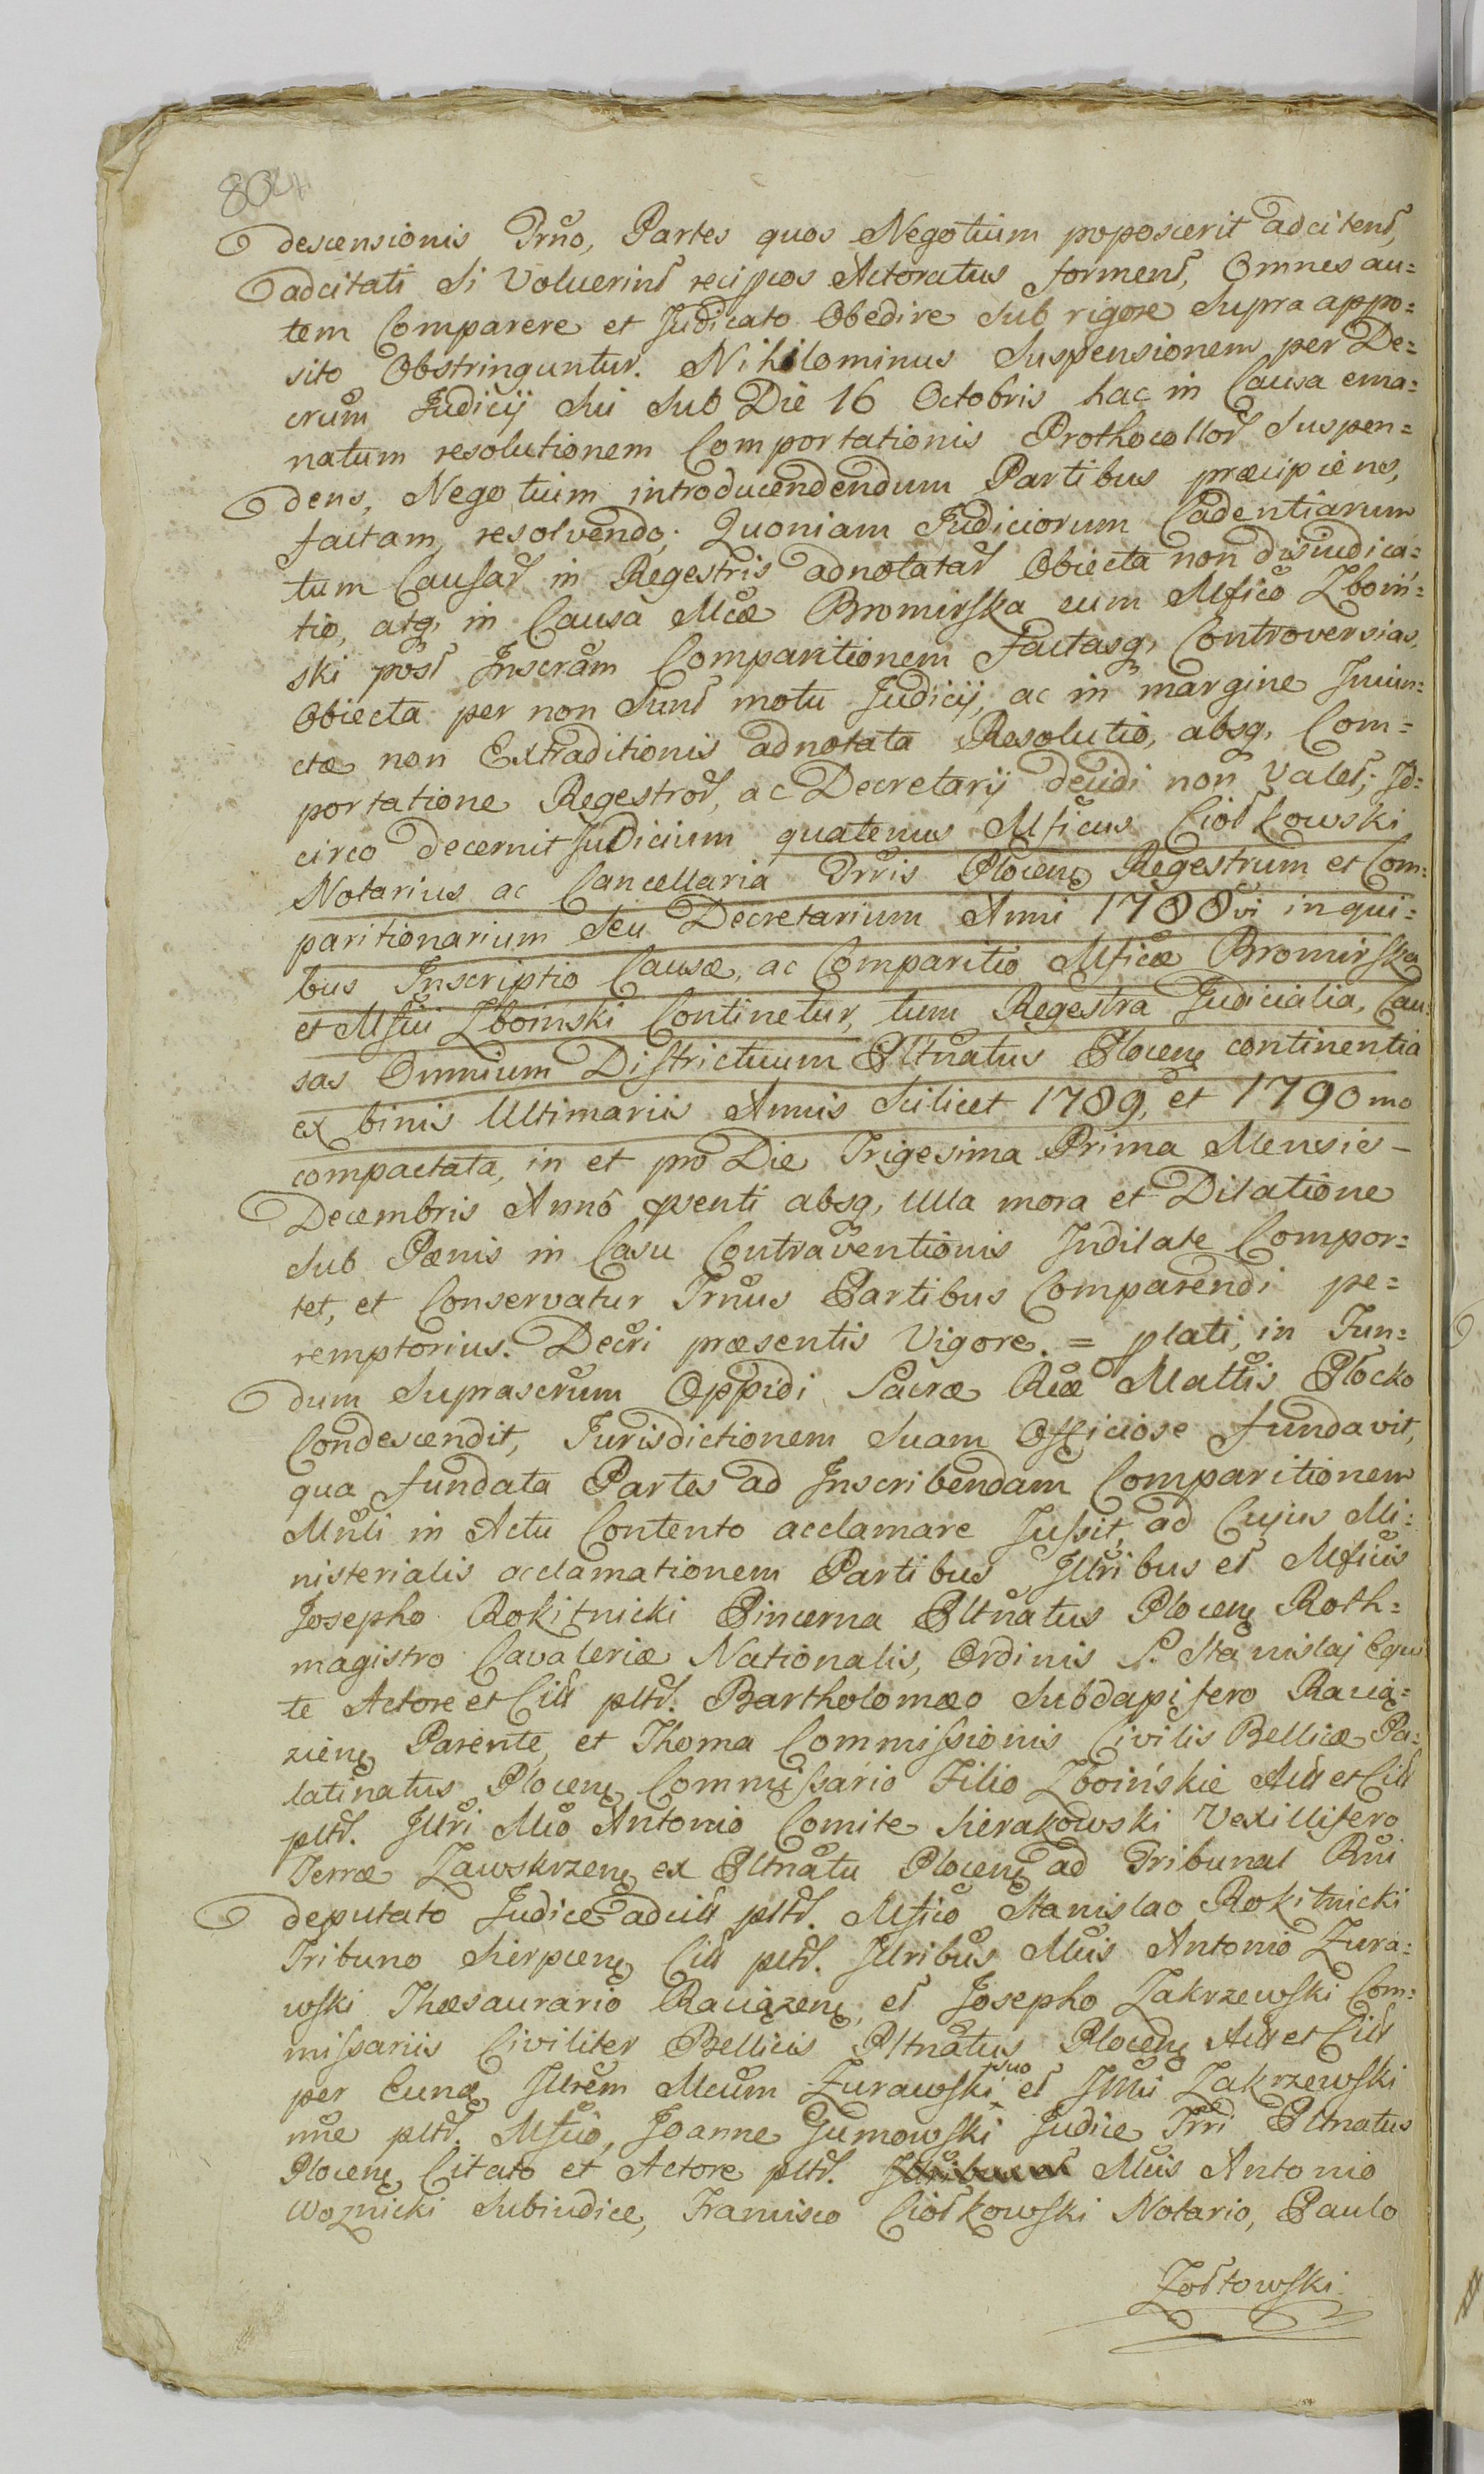 804
descensionis Trno, Partes quos Negotium poposcerit adcitent,
adcitati Si Voluerint recipcos Actoratus forment, Omnes au=
tem Comparere et Judicato Obedire Sub rigore Supra appo=
sito Obstringuntur. Nihilominus Suspensionem per De=
crum Judicij Sui Sub Die 16 Octobris hac in Causa ema=
natum resolutionem Comportationis Prothocollor Suspen=
dens, Negotium introducendendum Partibus præcipiens,
factam, resolvendo; Quoniam Judiciorum Cadentiarum
tum Causar in Regestris adnotatar Obiecta non disiudica=
tio, atq, in Causa Mcæ Bromirska cum Mfico Zboiń=
ski post Inscram Comparitionem Factasq, Controversias,
Obiecta per non Sunt motu Judicij, ac in margine Iniun=
ctæ non Extraditionis adnotata Resolutio, absq, Com=
portatione Regestror, ac Decretarij decidi non Valet; Id=
circo decernit Judicium quatenus Mficus Ciołkowski
Notarius ac Cancellaria Trris Plocen Regestrum et Com=
paritionarium Seu Decretarium Anni 1788vi in qui=
bus Inscriptio Causæ, ac Comparitio Mficæ Bromirska
et Mfici Zboinski Continetur, tum Regestra Judicialia, Cau=
sas Omnium Districtuum Pltnatus Plocen continentia
ex binis Ultimariis Annis Scilicet 1789, et 1790mo
compactata, in et pro Die Trigesima Prima Mensis –
Decembris Anno psenti absq, Ulla mora et Dilatione
Sub Pænis in Casu Contraventionis Indilate Compor=
tet, et Conservatur Trnus Partibus Comparendi pe=
remptorius. Decri præsentis Vigore. = plati, in Fun=
dum Suprascrum Oppidi Sacræ Ræ Mattis Płocko
Condescendit, Jurisdictionem Suam Officiose fundavit,
qua fundata Partes ad Inscribendam Comparitionem
Mnli in Actu Contento acclamare Jussit, ad Cujus Mi=
nisterialis acclamationem Partibus Illribus et Mficis
Josepho Rokitnicki Pincerna Pltnatus Plocen Roth=
magistro Cavaleriæ Nationalis, Ordinis S. Stanislaj Equi
te Actore et Citt pltr. Bartholomæo Subdapifero Raciąz=
zien Parente, et Thoma Commissionis Civilis Bellicæ Pa=
latinatus Plocen Commissario Filio Zboińskie Att et Citt
pltr. Illri Mco Antonio Comite Sierakowski Vexillifero
Terræ Zawskrzen ex Pltnatu Plocen ad Tribunal Rni
deputato Judice adcitt pltr. Mfico Stanislao Rokitnicki
Tribuno Sierpcen Citt pltr. Illribus Mcis Antonio Zura=
wski Thæsaurario Raciązen, et Josepho Zakrzewski Com=
missariis Civiliter Bellicis Pltnatus Plocen Att et Citt
per Eund Illrem Mcum Zurawski suo et Illmi Zakrzewski
nne pltr. Mfico, Joanne Gumowski Judice Trri Pltnatus
Plocen Citato et Actore pltr. Mcis Antonio
Woznicki Subiudice, Francisco Ciołkowski Notario, Paulo
Zołtowski